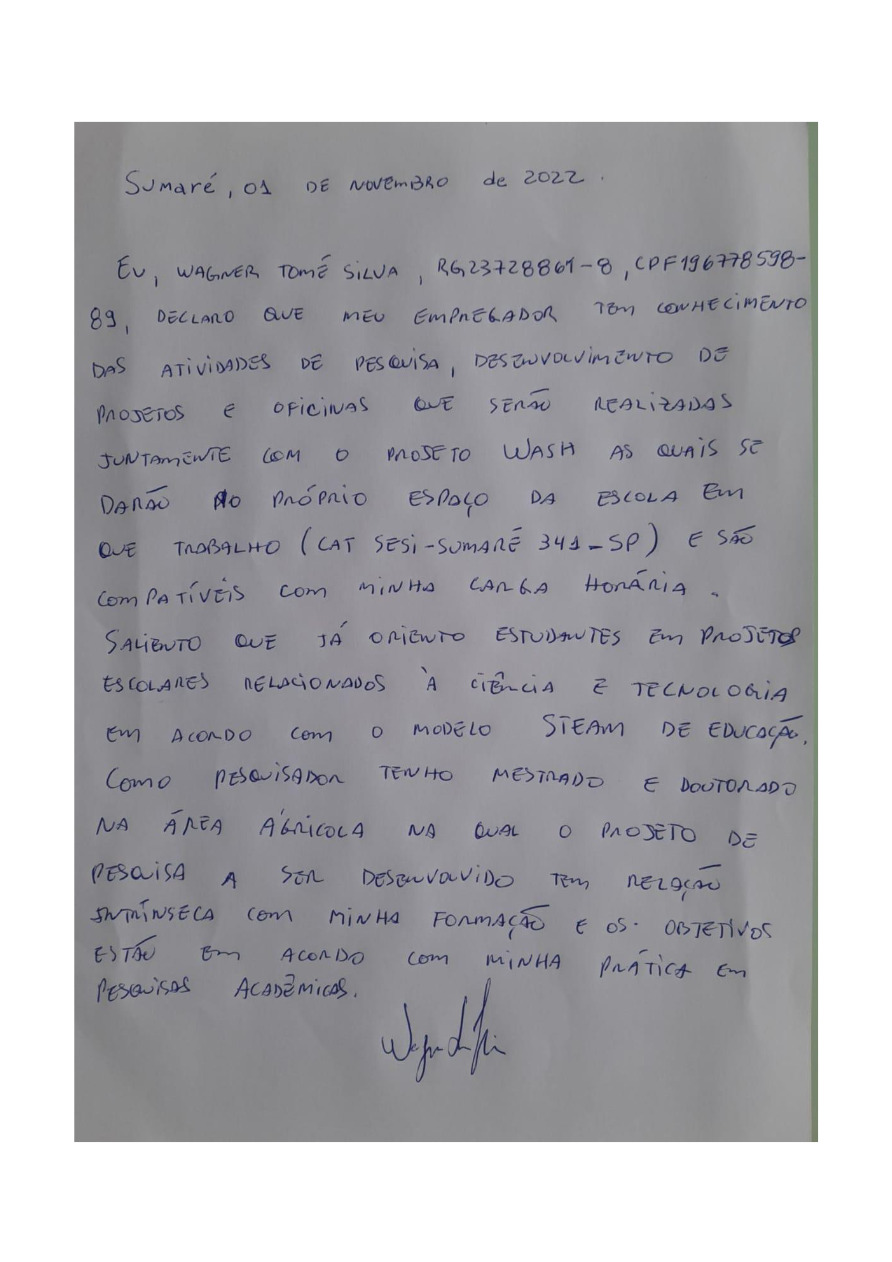 Sumaré, 01 DE NOVEMBRO de 2022.
EU, WAGNER TOMÉ SILVA, RG23728861-8, CPF196778598-
89, DECLARO QUE MEU EMPREGADOR TEM CONHECIMENTO
DAS ATIVIDADES DE PESQUISA, DESENVOLVIMENTO DE
PROJETOS E OFICINAS QUE SERÃO REALIZADAS
JUNTAMENTE COM O PROJETO WASH AS QUAIS SE
DARÃO NO PRÓPRIO ESPAÇO DA ESCOLA EM
QUE TRABALHO (CAT SESI-SUMARÉ 341-SP) E SÃO
COMPATÍVEIS COM MINHA CARGA HORÁRIA.
SALIENTO QUE JÁ ORIENTO ESTUDANTES EM PROJETOS
ESCOLARES RELACIONADOS À CIÊNCIA E TECNOLOGIA
EM ACORDO COM O MODELO STEAM DE EDUCAÇÃO.
COMO PESQUISADOR TENHO MESTRADO E DOUTORADO
NA ÁREA AGRÍCOLA NA QUAL O PROJETO DE
PESQUISA A SER DESENVOLVIDO TEM RELAÇÃO
INTRÍNSECA COM MINHA FORMAÇÃO E OS OBJETIVOS
ESTÃO EM ACORDO COM MINHA PRÁTICA EM
PESQUISAS ACADÊMICAS.